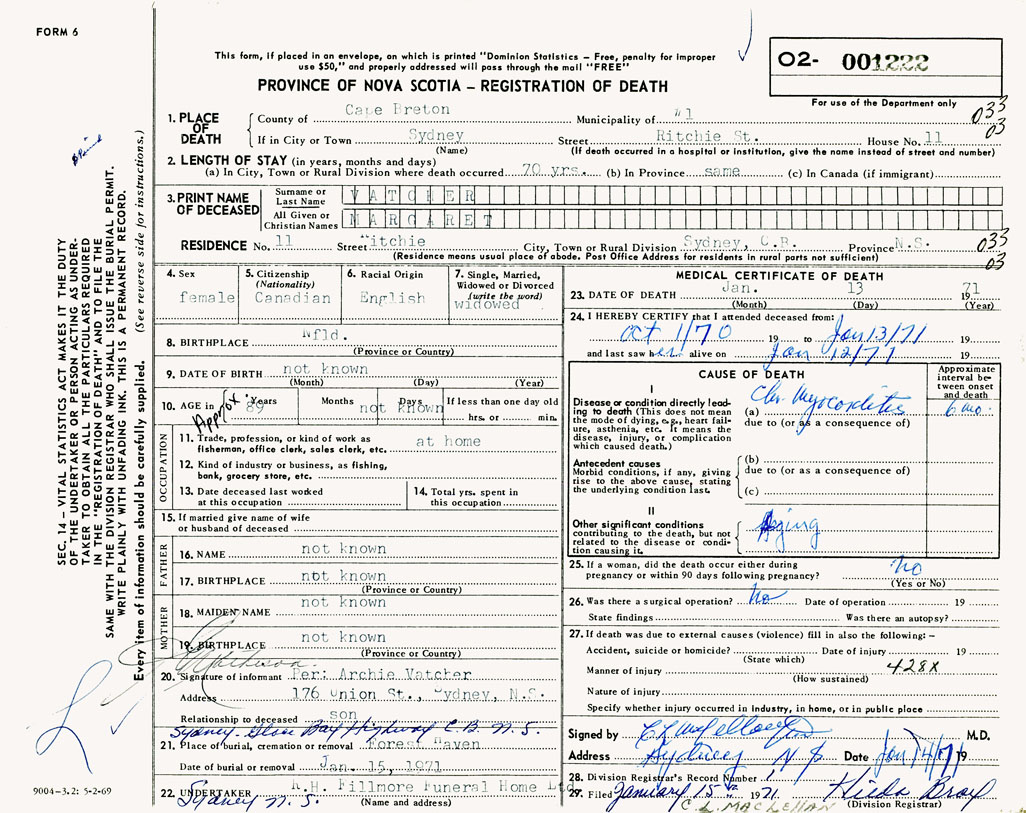 FORM 6
This form, if placed in an envelope, on which is printed "Dominion Statistics - Free, penalty for improper
use $50," and properly addressed will pass through the mail "FREE"
PROVINCE OF NOVA SCOTIA - REGISTRATION OF DEATH
O2- 001222
For use of the Department only
033
03
1. PLACE OF DEATH
County of Cape Breton Municipality of #1
If in City or Town Sydney Street Ritchie St. House No. 11
(Name) (If death occurred in a hospital or institution, give the name instead of street and number)
2. LENGTH OF STAY (in years, months and days)
(a) In City, Town or Rural Division where death occurred 70 yrs. (b) In Province same (c) In Canada (if immigrant)
3. PRINT NAME OF DECEASED
Surname or Last Name VATCHER
All Given or Christian Names MARGARET
RESIDENCE No. 11 Street Ritchie City, Town or Rural Division Sydney, C.B. Province N.S. 033
(Residence means usual place of abode. Post Office Address for residents in rural parts not sufficient) 03
4. Sex
female
5. Citizenship
(Nationality)
Canadian
6. Racial Origin
English
7. Single, Married,
Widowed or Divorced
(write the word)
widowed
8. BIRTHPLACE Nfld.
(Province or Country)
9. DATE OF BIRTH not known
(Month) (Day) (Year)
10. AGE in Approx Years 89 Months Days not known If less than one day old
hrs. or min.
OCCUPATION
11. Trade, profession, or kind of work as at home
fisherman, office clerk, sales clerk, etc.
12. Kind of industry or business, as fishing,
bank, grocery store, etc.
13. Date deceased last worked
at this occupation
14. Total yrs. spent in
this occupation
15. If married give name of wife
or husband of deceased
FATHER
16. NAME not known
17. BIRTHPLACE not known
(Province or Country)
MOTHER
18. MAIDEN NAME not known
19. BIRTHPLACE not known
(Province or Country)
20. Signature of informant Per: Archie Vatcher
Address 176 Union St., Sydney, N.S.
Relationship to deceased son
Sydney - Glace Bay Highway C.B. N.S.
21. Place of burial, cremation or removal Forest Haven
Date of burial or removal Jan. 15, 1971
22. UNDERTAKER A.H. Fillmore Funeral Home Ltd
Sydney N.S. (Name and address)
MEDICAL CERTIFICATE OF DEATH
23. DATE OF DEATH Jan. 13 1971
(Month) (Day) (Year)
24. I HEREBY CERTIFY that I attended deceased from:
Oct 1/70 19 to Jan 13/71 19
and last saw her alive on Jan 12/71 19
CAUSE OF DEATH
Approximate
interval be-
tween onset
and death
I
Disease or condition directly lead-
ing to death (This does not mean
the mode of dying, e.g., heart fail-
ure, asthenia, etc. It means the
disease, injury, or complication
which caused death.)
(a) Chr. Myocarditis 6 mo.
due to (or as a consequence of)
Antecedent causes
Morbid conditions, if any, giving
rise to the above cause, stating
the underlying condition last.
(b)
due to (or as a consequence of)
(c)
II
Other significant conditions
contributing to the death, but not
related to the disease or condi-
tion causing it.
Aging
25. If a woman, did the death occur either during
pregnancy or within 90 days following pregnancy? No
(Yes or No)
26. Was there a surgical operation? No Date of operation 19
State findings Was there an autopsy?
27. If death was due to external causes (violence) fill in also the following: -
Accident, suicide or homicide? Date of injury 19
(State which)
Manner of injury 428X
(How sustained)
Nature of injury
Specify whether injury occurred in industry, in home, or in public place
Signed by M.D.
Address Sydney N S Date Jan 14/71 19
28. Division Registrar's Record Number
29. Filed January 15 1971 Hilda
C. L. MACLELLAN (Division Registrar)
SEC. 14 - VITAL STATISTICS ACT MAKES IT THE DUTY
OF THE UNDERTAKER OR PERSON ACTING AS UNDER-
TAKER TO OBTAIN ALL THE PARTICULARS REQUIRED
IN THE "REGISTRATION OF DEATH" AND TO FILE THE
SAME WITH THE DIVISION REGISTRAR WHO SHALL ISSUE THE BURIAL PERMIT.
WRITE PLAINLY WITH UNFADING INK. THIS IS A PERMANENT RECORD.
Every item of information should be carefully supplied. (See reverse side for instructions.)
9004-3.2: 5-2-69